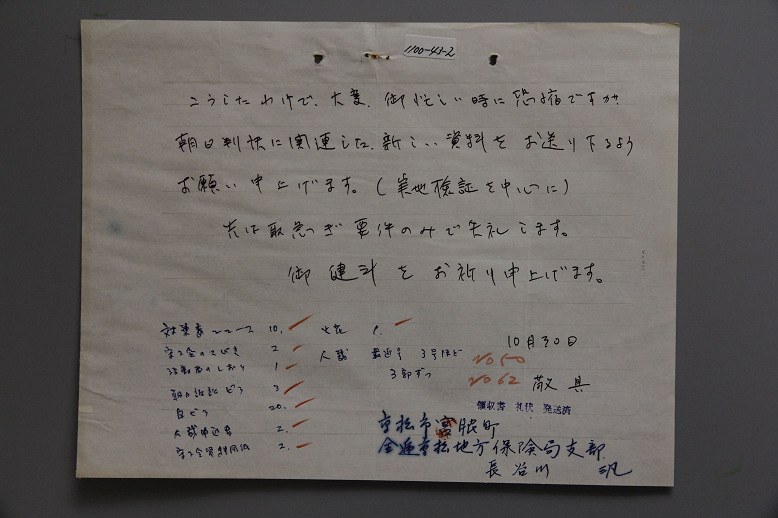 1100-43-2
こうしたわけで、大変、御忙しい時に恐縮ですが
朝日判決に関連した、新しい資料をお送り下るよう
お願い申上げます。(実地検証を中心に)
先は取急ぎ要件のみで失礼します。
御健斗をお祈り申上げます。
10月30日
敬具
対策委ニュース 10.
2
活動者のしおり 1
朝日訴訟ビラ 3
白ビラ 20.
入獄申込書 2.
2.
火花 1.
人裁 最近号 3号ほど
3部ずつ
No 50
No 62
領収書 礼状 発送済
高松市宮脇町
全逓高松地方保険局支部
長谷川